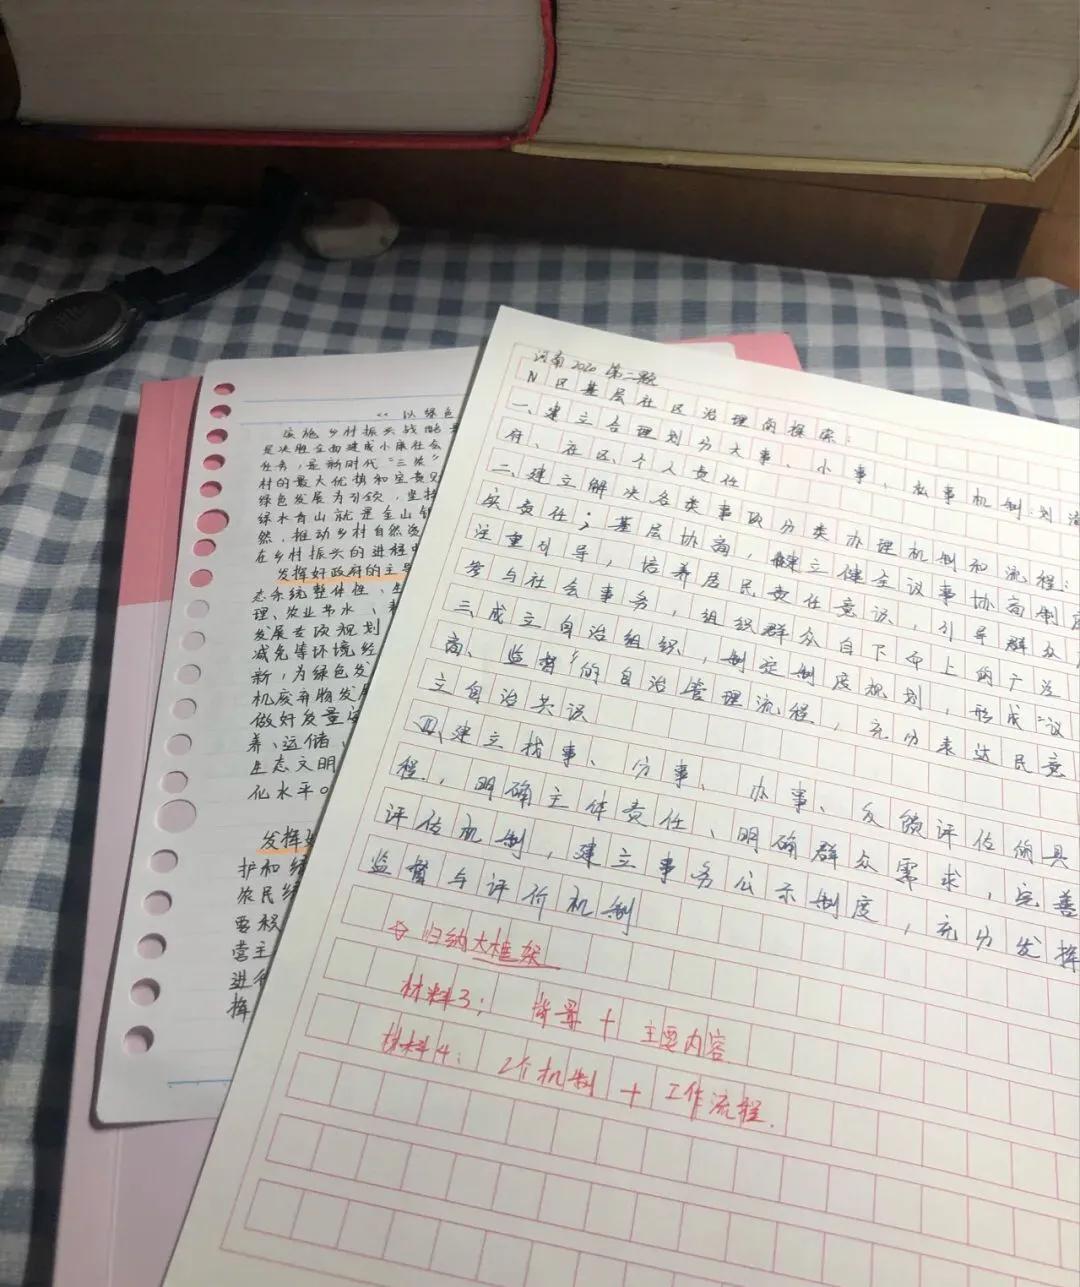 河南2020 第二题
N区基层社区治理的探索:
一、建立合理划分大事、小事、私事机制:划清
府、社区、个人责任
二、建立解决各类事项分类办理机制和流程:
实责任;基层协商,建立健全议事协商制度
注重引导,培养居民责任意识,引导群众
参与社会事务,组织群众自下而上的广泛
三、成立自治组织,制定制度规划,形成“议
商、监督”的自治管理流程,充分表达民意
立自治共识
四、建立找事、分事、办事、反馈评估的具
程,明确主体责任、明确群众需求,完善
评估机制,建立事务公示制度,充分发挥
监督与评价机制
归纳大框架
材料3: 背景+主要内容
材料4: 2个机制+工作流程.
“以绿色
实施乡村振兴战略是
是决胜全面建成小康社会
任务,是新时代“三农”
村的最大优势和宝贵
绿色发展为引领,坚持
绿水青山就是金山银
然,推动乡村自然资
在乡村振兴的进程中
发挥好政府的主导
态系统整体性、生
理、农业节水、
发展专项规划
减免等环境经
新,为绿色发
机废弃物发展
做好质量
养、运储、
生态文明
化水平。
发挥
护和
农民
要积
营主
进行
挥